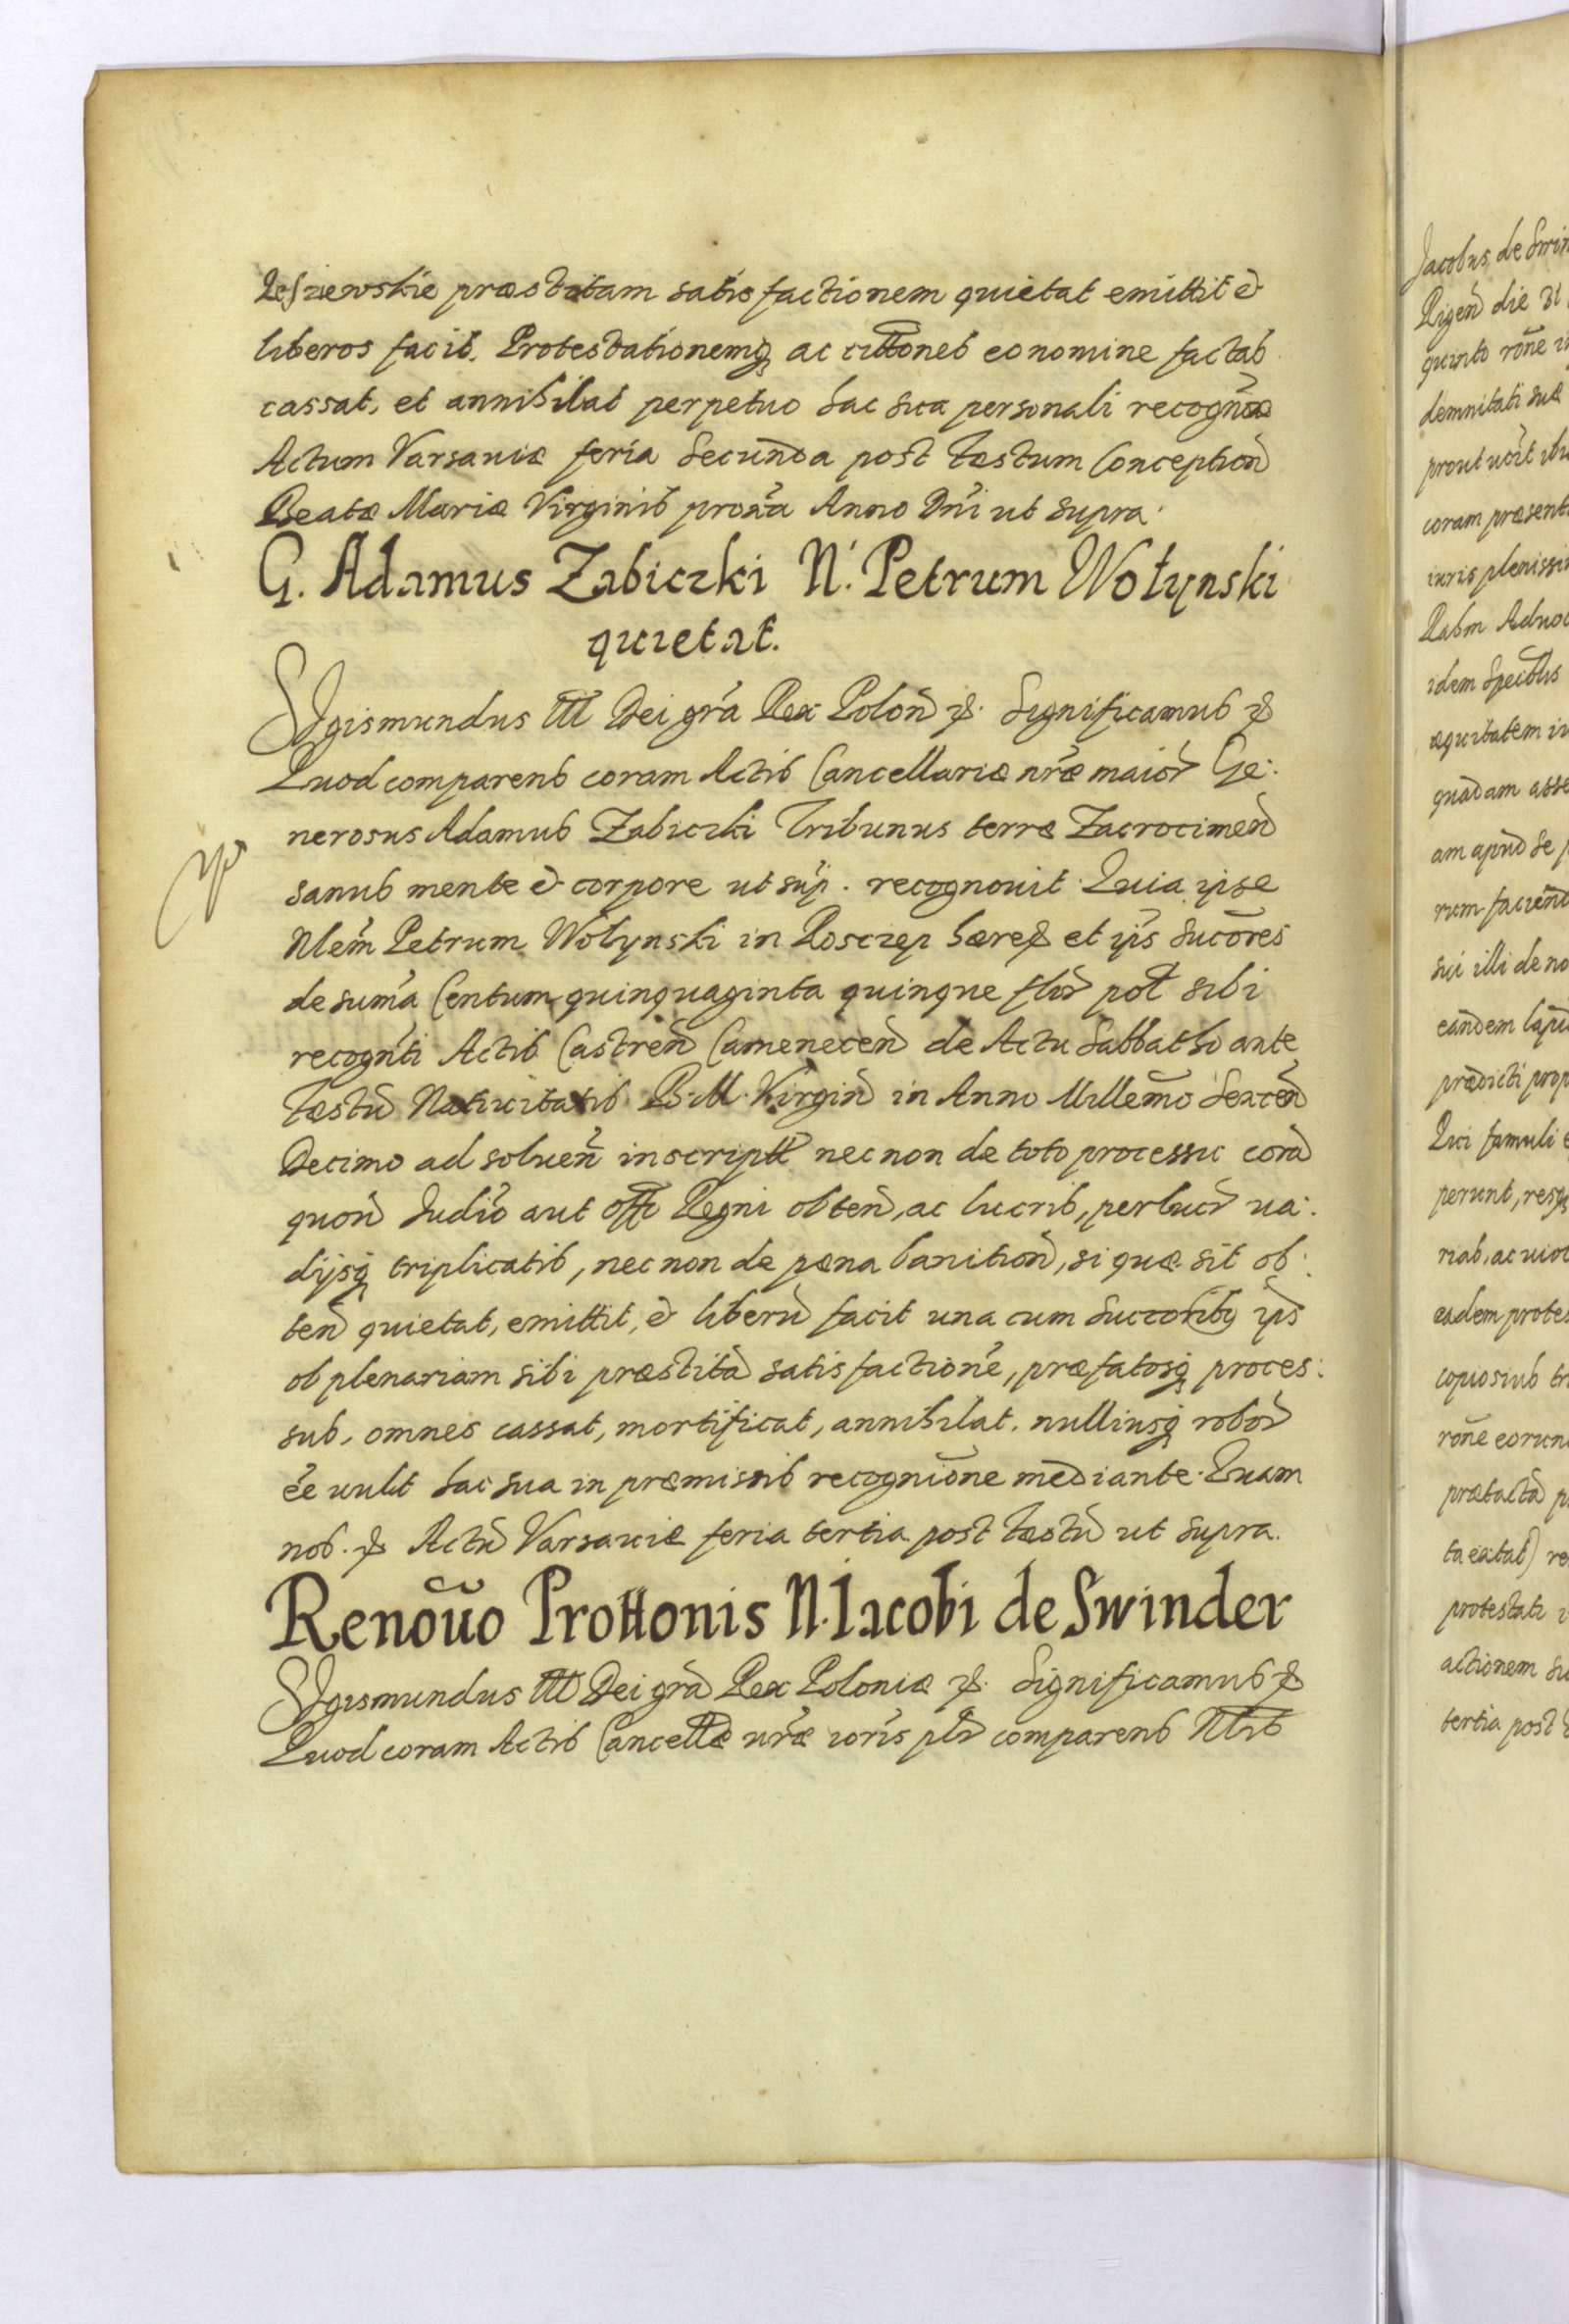 præstitam satisfactionem quietat emittit et
liberos facit. Protestationemq ac cittones eo nomine factas
cassat, et annihilat perpetuo hac sua personali recognoe
Actum Varsaviæ feria secunda post Festum Conception
Beatæ Mariæ Virginis proxa Anno Dni ut supra
G. Adamus Zabiczki N. Petrum Wołynski
quietat.
Sigismundus III Dei gra Rex Polon etc. Significamus etc
Quod comparens coram Actis Cancellariæ nræ maior Ge:
nerosus Adamus Zabiczki Tribunus terræ Zacrocimen
sanus mente et corpore ut sup. recognovit. Quia ipse
Nlem Petrum Wołynski in Rosczep hæred et ips sucores
de suma Centum quinquaginta quinque flor pol sibi
recognti Actis Castren Camenecen de Actu Sabbatho ante
Festu Nativitatis B. M. Virgin in Anno Millemo Sexcen
Decimo ad solven inscriptt nec non de toto processu cora
quon Judio aut offo Regni obten, ac lucris, perlucr va:
dijsq triplicatis, nec non de pæna banition, si quæ sit ob:
ten quietat, emittit, et liberu facit una cum succoribq ips
ob plenariam sibi præstita satisfactione, præfatosq proces:
sus, omnes cassat, mortificat, annihilat, nulliusq robor
ee vult hac sua in præmissis recognione mediante. Quam
nos. etc Actu Varsaviæ feria tertia post Festu ut supra.
Renovo Prottonis N. Iacobi de Swinder
Sigismundus III Dei gra Rex Poloniæ etc. Significamus etc
Quod coram Actis Cancellæ nræ ioris plr comparens Nlis
Jacobus de Swin
Rigen die
quinto rone
demnitati suæ
prout
coram præsent
iuris plenissi
Rabm Advoc
idem Spectlis
æquitatem in
quadam asse
am apud se
rum facien
sui illi de no
eandem
prædicti prop
Qui famuli
perunt, resq
rias, ac viol
eadem protes
copiosius
rone eorun
prætacta
ta exitat) re
protestati
actionem su
tertia post